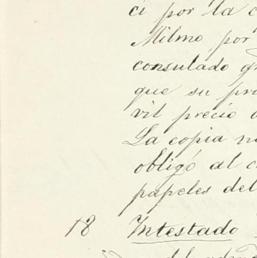 ci por la c
Milmo por
consulado q
que su pro
vil precio
La copia no
obligó al c
papeles del
18 Intestado